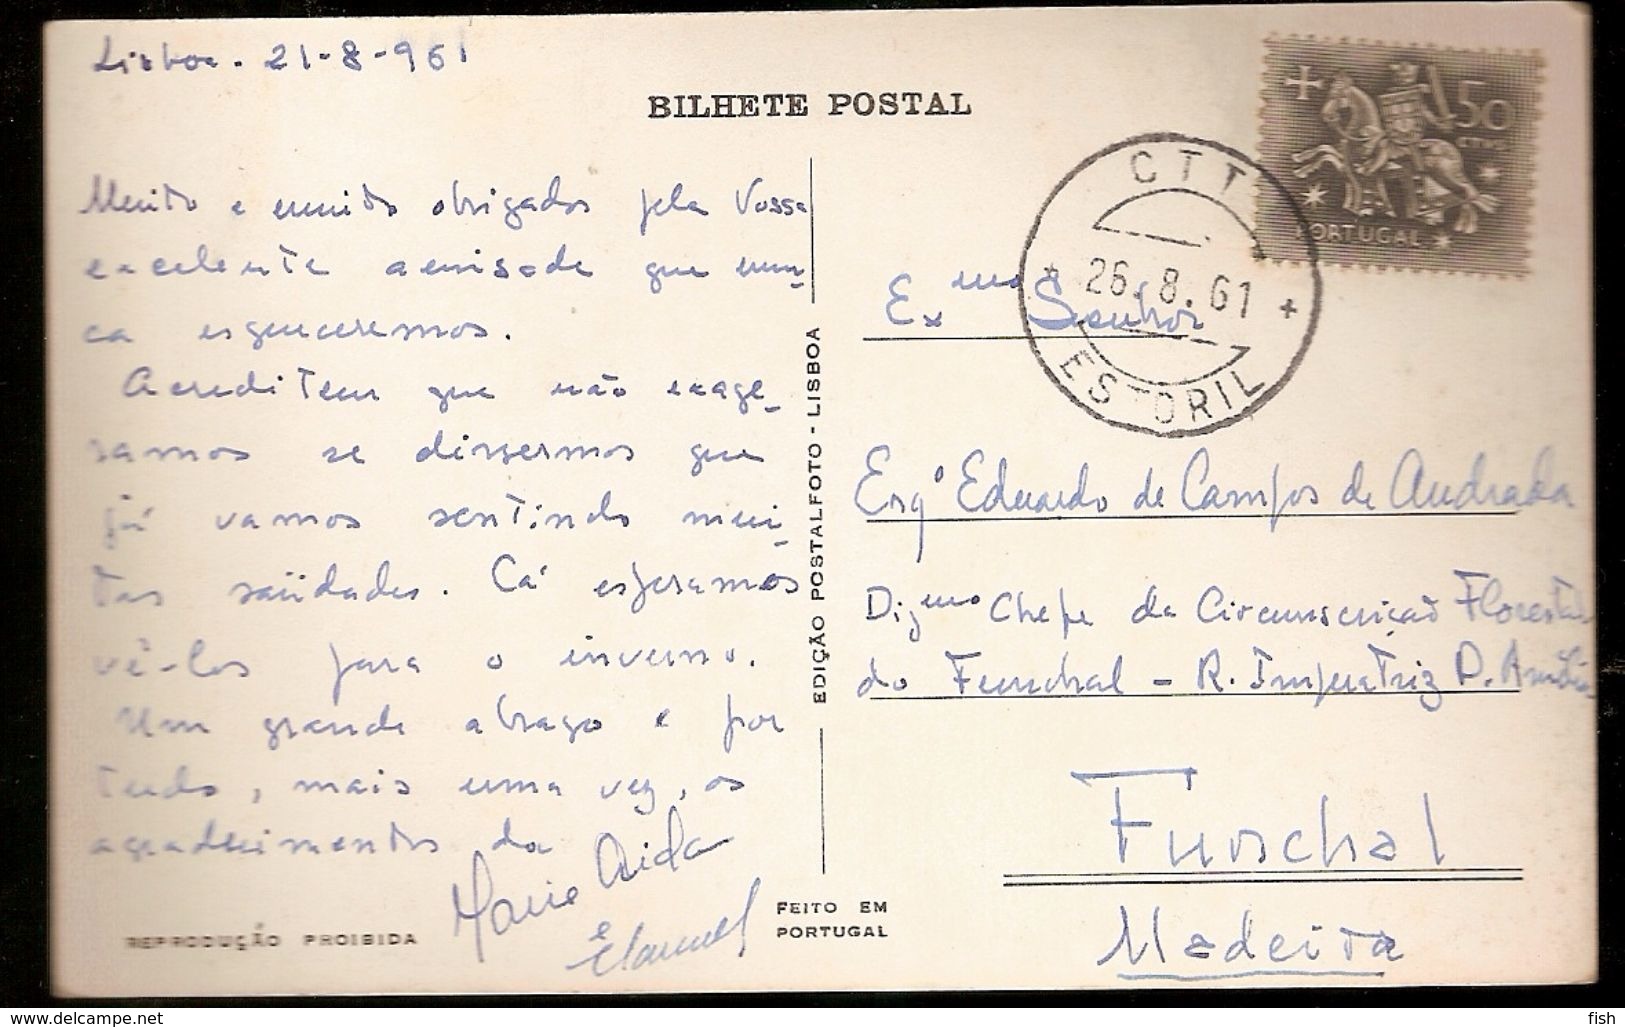 Lisboa - 21-8-961
BILHETE POSTAL
50
CTVS
PORTUGAL
CTT
26.8.61
ESTORIL
Muito e muito obrigados pela Vossa
excelente amisade que nun-
ca esqueceremos.
Acreditem que não exage-
ramos se dissermos que
já vamos sentindo mui-
tas saüdades. Cá esperamos
vê-los para o inverno.
Um grande abraço e por
tudo, mais uma vez, os
agradecimentos da
Maria Aida
e Manuel
REPRODUÇÃO PROIBIDA
EDIÇÃO POSTALFOTO - LISBOA
FEITO EM
PORTUGAL
Ex mo Senhor
Engº Eduardo de Campos de Andrada
Dig mo Chefe da Circunscrição Florestal
do Funchal - R. Imperatriz D. Amélia
Funchal
Madeira
www.delcampe.net
fish